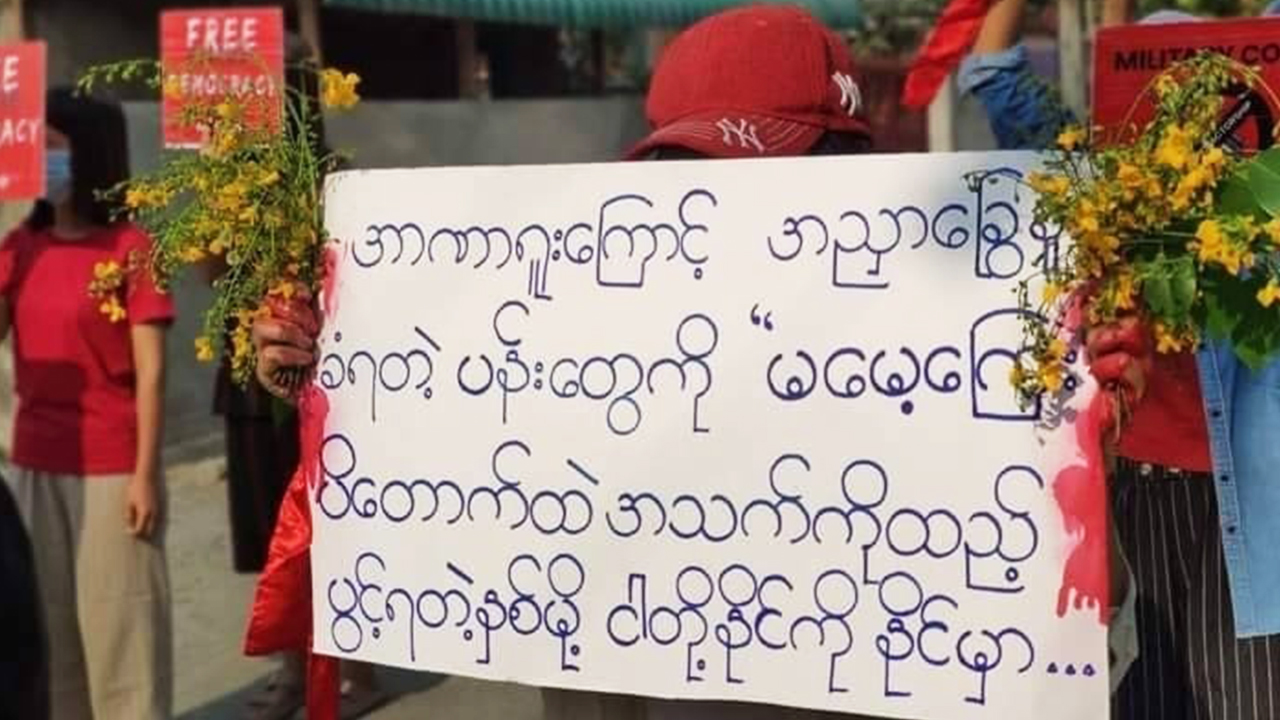 FREE
DEMOCRACY
E
ACY
MILITARY CO
အာဏာရူးကြောင့် အညှာခြွေ
ခံရတဲ့ ပန်းတွေကို “မမေ့ကြေး
ပိတောက်ထဲ အသက်ကိုထည့်
ပွင့်ရတဲ့နှစ်မို့ ငါတို့နိုင်ကို နိုင်မှာ...